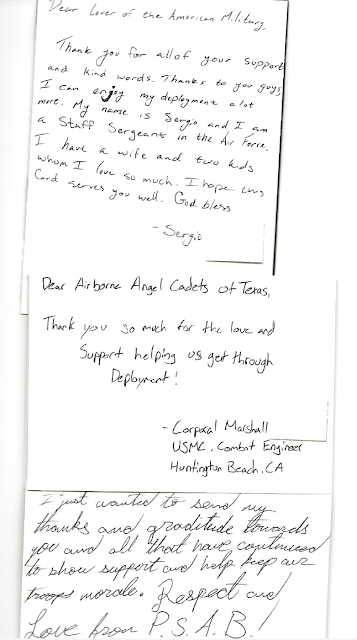 Dear Lover of the American Military,
Thank you for all of your support
and kind words. Thanks to you guys
I can enjoy my deployment a lot
more. My name is Sergio and I am
a Staff Sergeant in the Air Force.
I have a wife and two kids
whom I love so much. I hope this
Card serves you well. God bless
- Sergio
Dear Airborne Angel Cadets of Texas,
Thank you so much for the love and
Support helping us get through
Deployment!
- Corporal Marshall
USMC, Combat Engineer
Huntington Beach, CA
I just wanted to send my
thanks and graditude towards
you and all that have continued
to show support and help keep our
troops morale. Respect and
Love from P.S.A.B.!